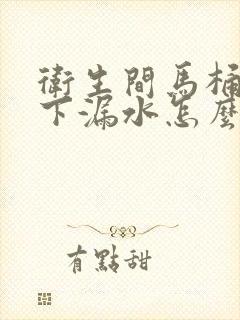 衛生間馬桶
下漏水怎麼
有點甜